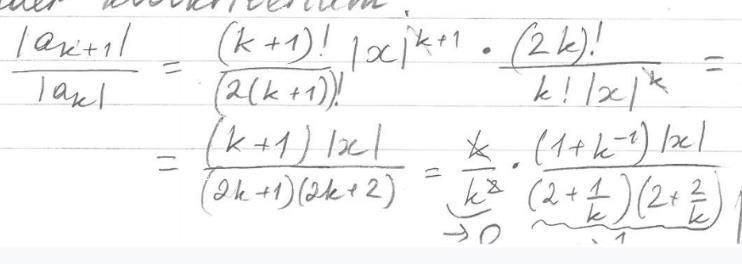 |a_{k+1}| / |a_k| = (k+1)! / (2(k+1))! |x|^{k+1} · (2k)! / k! |x|^k =
= (k+1) |x| / (2k+1)(2k+2) = k / k^2 · (1+k^{-1}) |x| / (2+1/k)(2+2/k)
→0